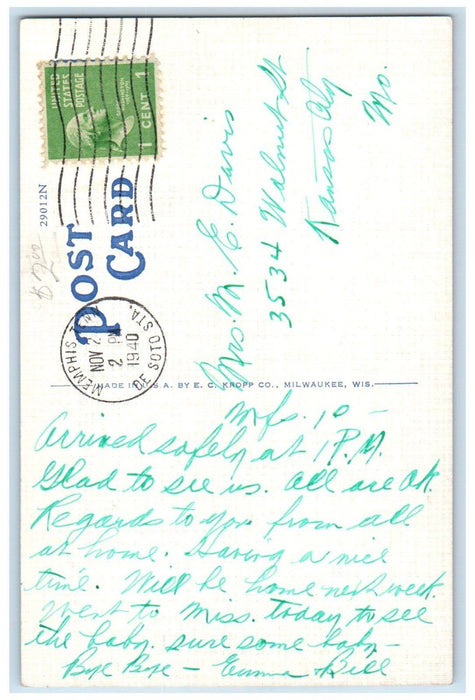 UNITED
STATES
POSTAGE
1 CENT 1
29012N
POST
CARD
$2.00
MEMPHIS, TENN.
NOV 2
2 PM
1940
DE SOTO STA.
Mrs. M. E. Davis
3534 Walnut St
Kansas City
Mo.
MADE IN U.S.A. BY E. C. KROPP CO., MILWAUKEE, WIS.
10 -
Arrived safely at 1 P.M.
Glad to see us. All are OK.
Regards to you from all
at home. Having a nice
time. Will be home next week.
Went to Miss. today to see
the baby. sure some baby -
Bye Bye - Emma & Bill